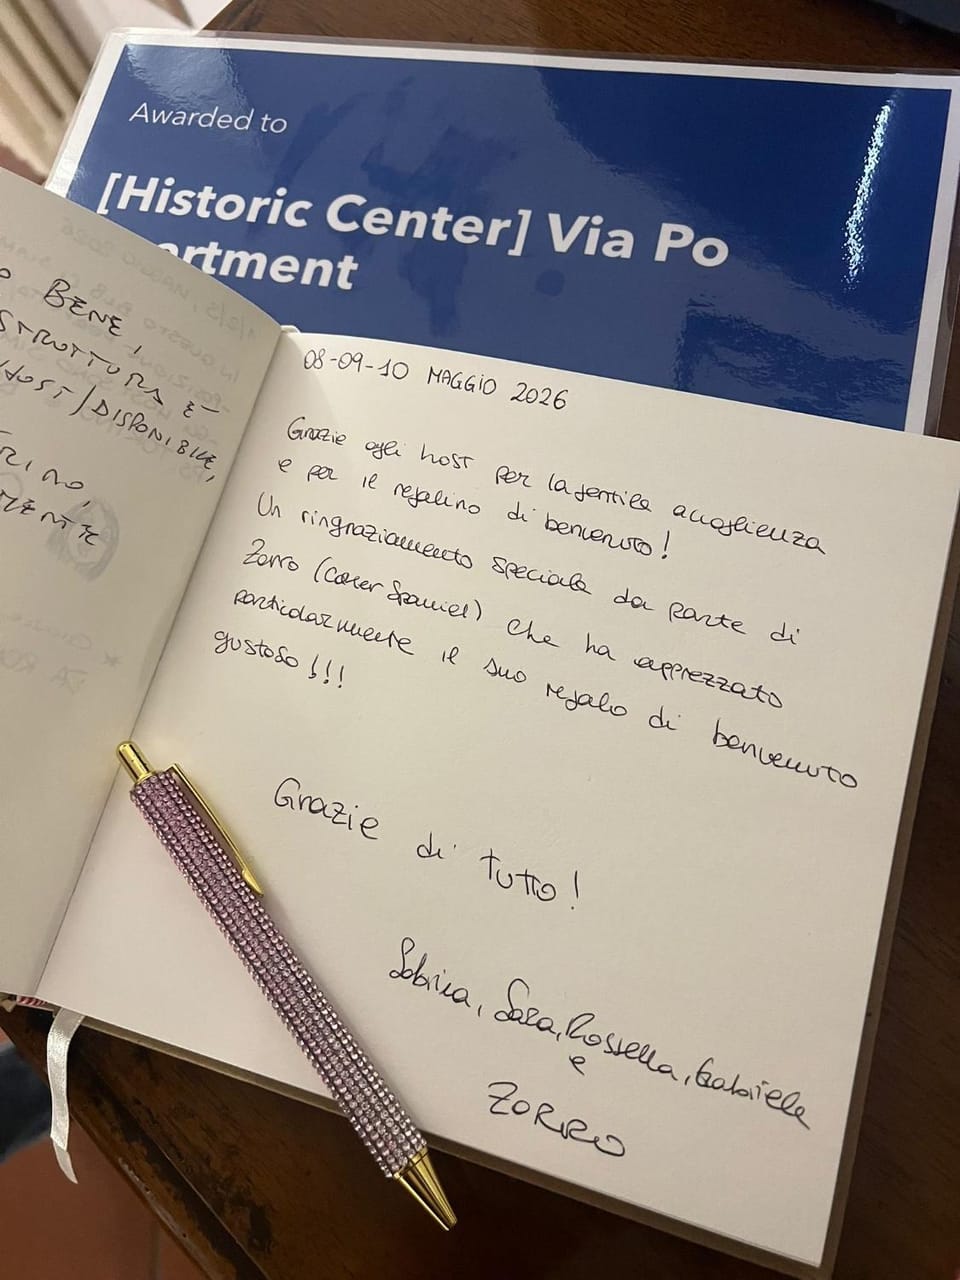 Awarded to
[Historic Center] Via Po
artment
BENE,
STRUTTURA E'
HOST/DISPONIBILE,
08-09-10 MAGGIO 2026
Grazie agli host per la gentile accoglienza
e per il regalino di benvenuto!
Un ringraziamento speciale da parte di
Zorro (Cocker Spaniel) che ha apprezzato
particolarmente il suo regalo di benvenuto
gustoso!!!
Grazie di tutto!
Sabrina, Sara, Rossella, Gabriele
e
ZORRO